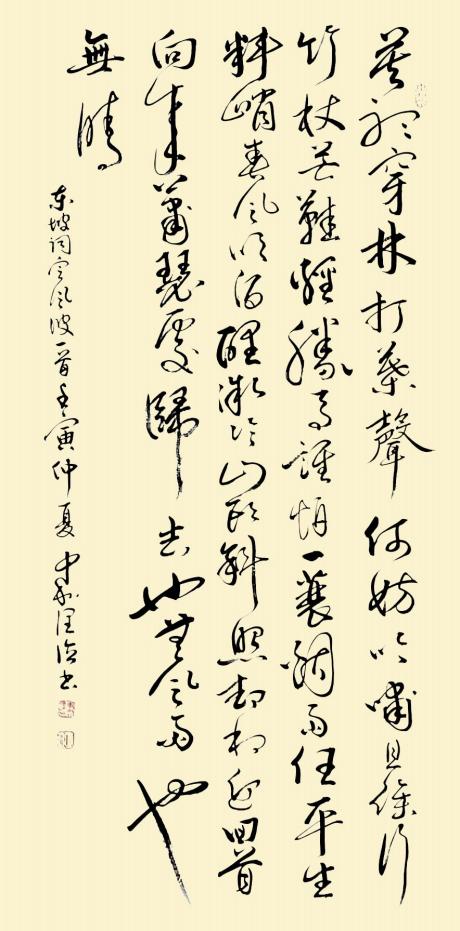 莫聽穿林打葉聲何妨吟嘯且徐行
竹杖芒鞋輕勝馬誰怕一蓑烟雨任平生
料峭春風吹酒醒微冷山頭斜照却相迎回首
向來蕭瑟處歸去也無風雨也
無晴
东坡词定风波一首壬寅仲夏